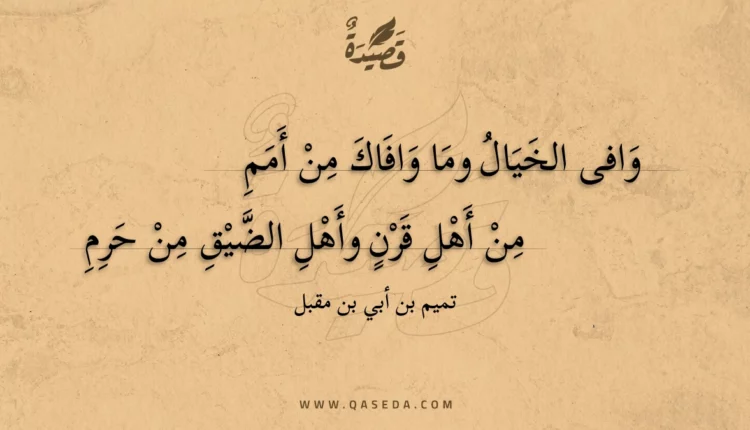 قَصِيدَةٌ
وَافى الخَيَالُ ومَا وَافَاكَ مِنْ أَمَمِ
مِنْ أَهْلِ قَرْنٍ وأَهْلِ الضَّيْقِ مِنْ حَرِمِ
تميم بن أبي بن مقبل
WWW.QASEDA.COM